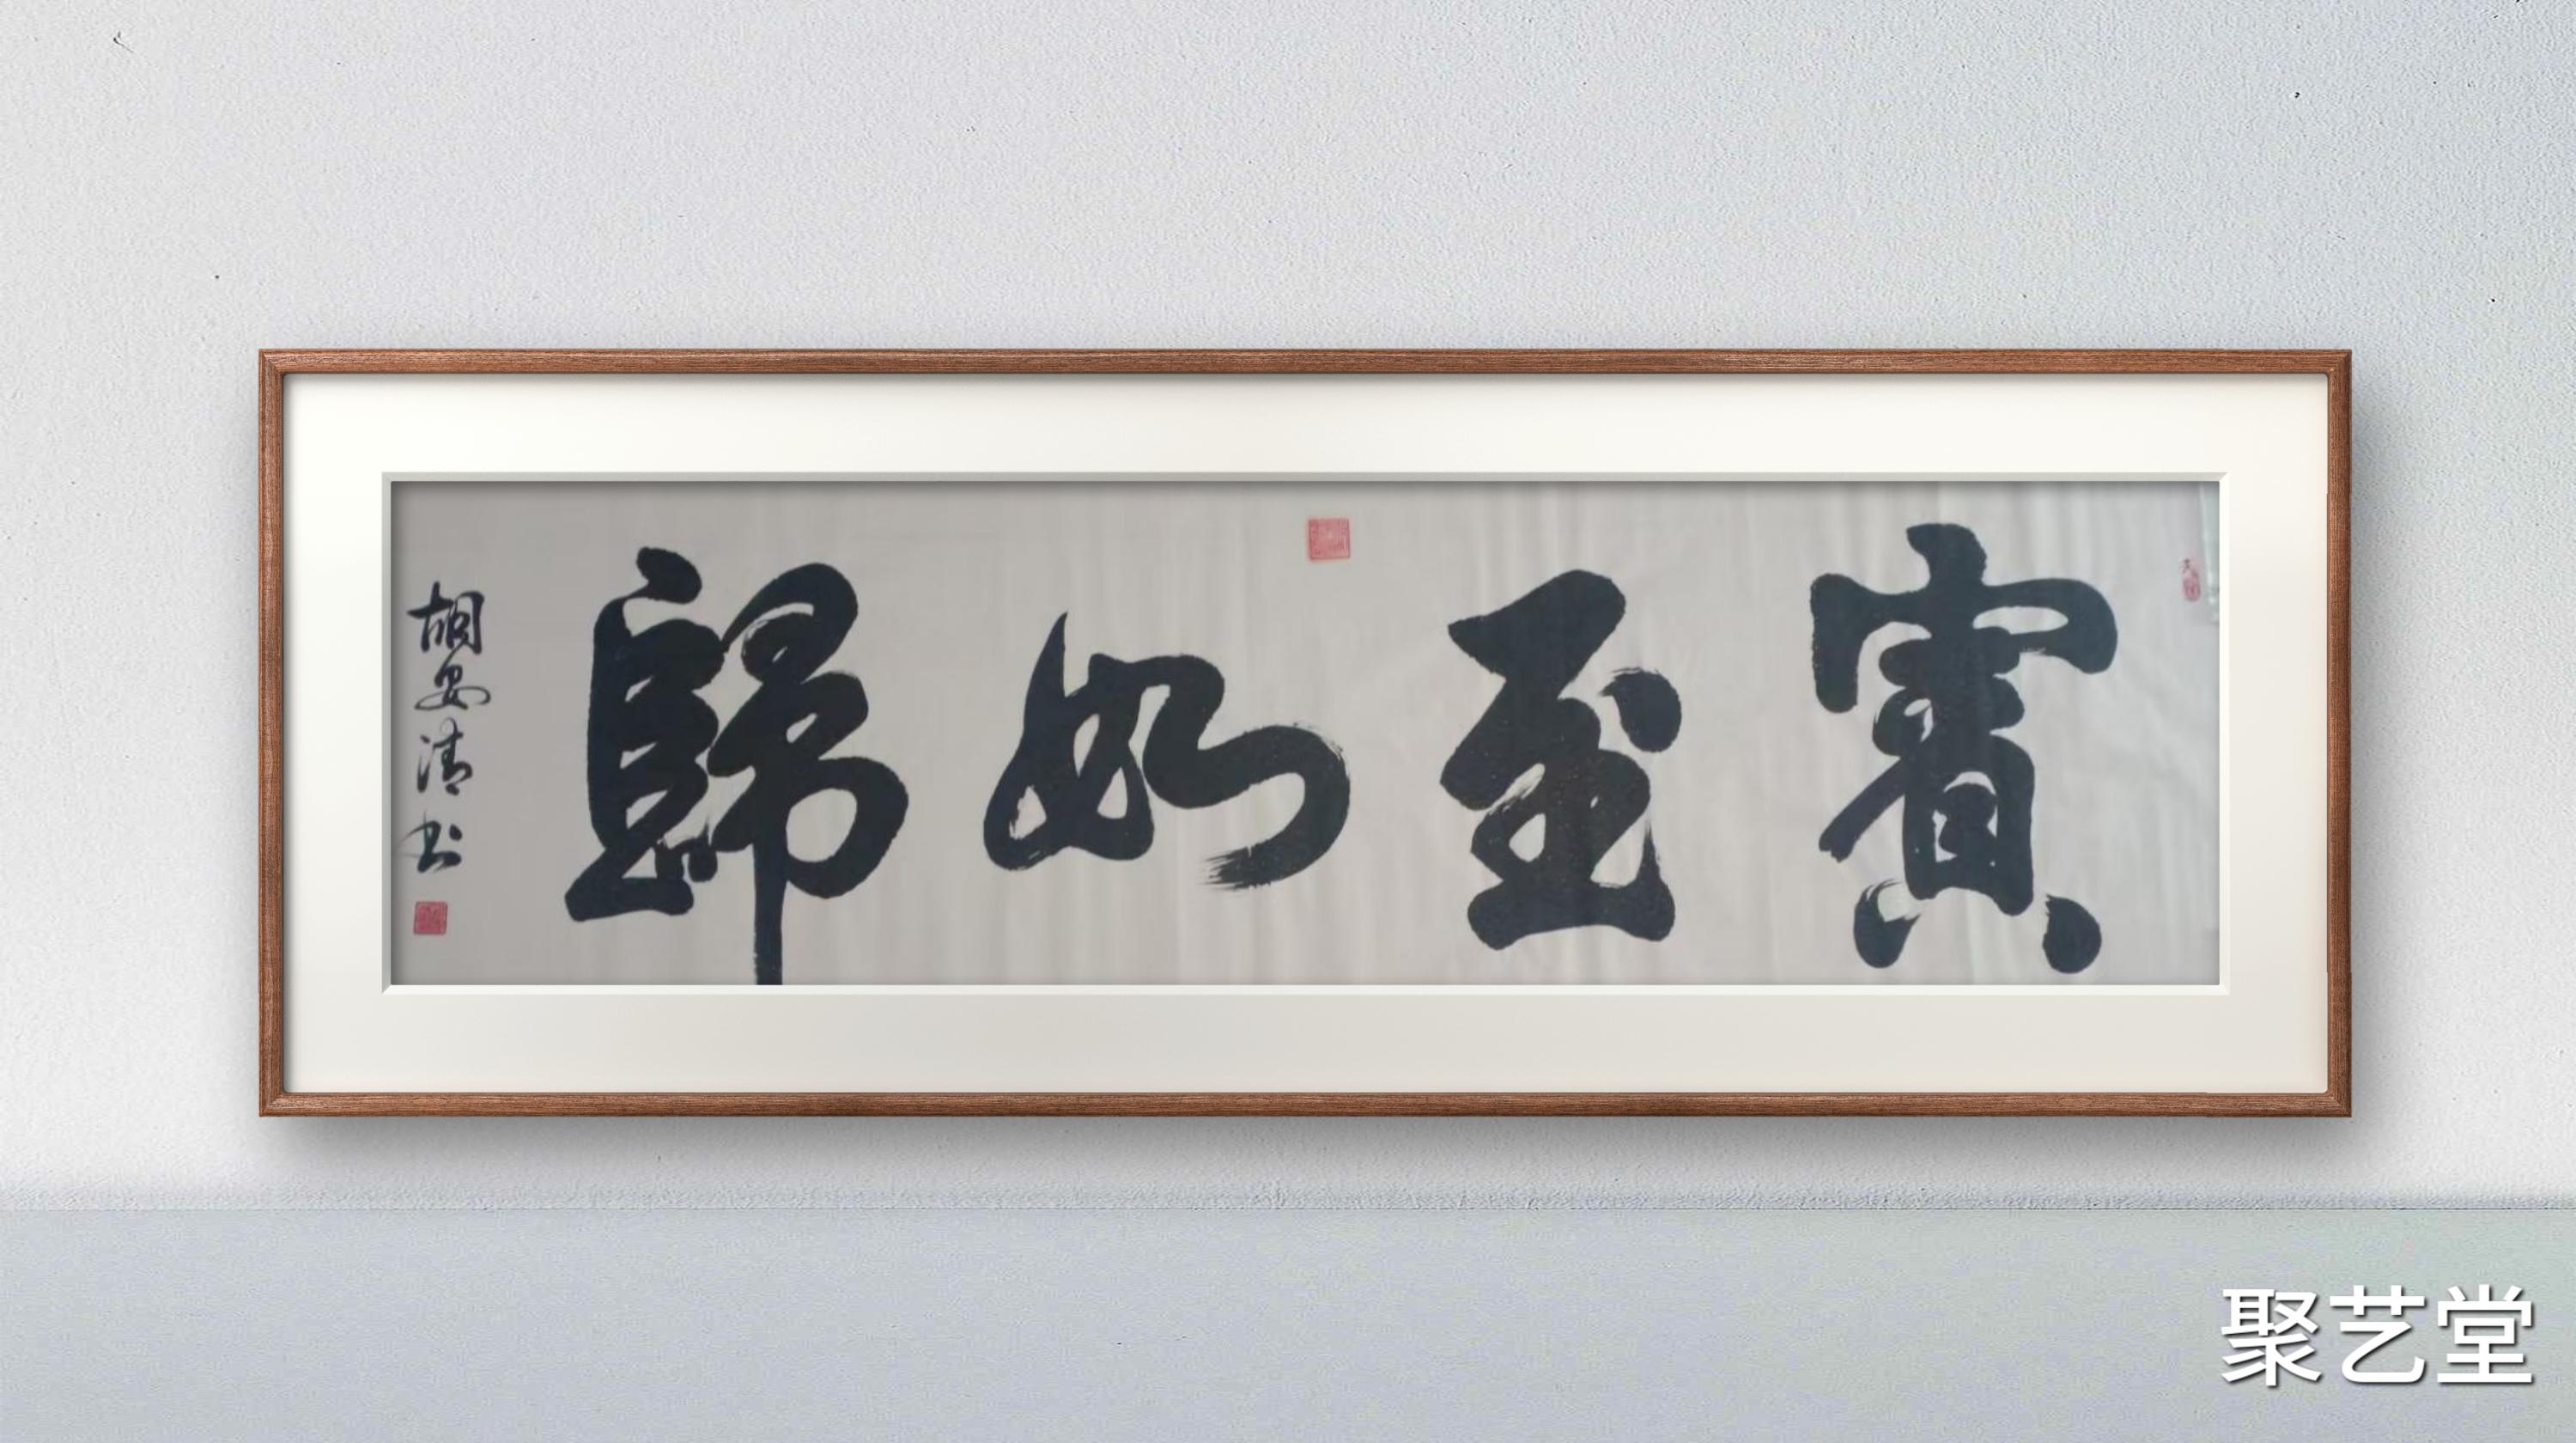 賓至如歸
胡安清书
聚艺堂